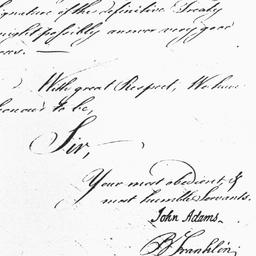 Signature of the definitive Treaty
might possibly answer very good
With great Respect, We have
honour to be,
Sir,
Your most obedient &
most humble Servants.
John Adams.
B Franklin